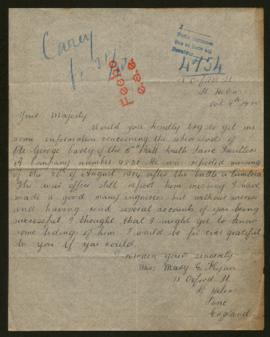 Carey
Fecho
e.a.e.
4754
St Helens
Oct 9th 19
Your Majesty
Would you kindly try to get me
some information concerning the whereabouts of
Pte George of the 5th South Lancs
A Company number He was reported missing
of the 26th of August 1914 after the battle of
The war office still report him missing I have
made a good many enquiries but without success
and having read several accounts of you being
successful I thought that I might get to know
some tiding of him I would be for ever grateful
to you if you would.
I remain yours sincerely
Mrs Mary E.
Oxford St
St Helens
Lanc
England